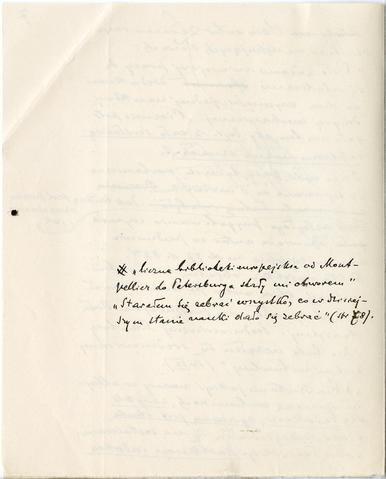 # „liczne biblioteki europejskie od Mont-
pellier do Petersburga stały mi otworem”
„Starałem się zebrać wszystko, co w dzisiej-
szym stanie nauki dało się zebrać” (str 78).